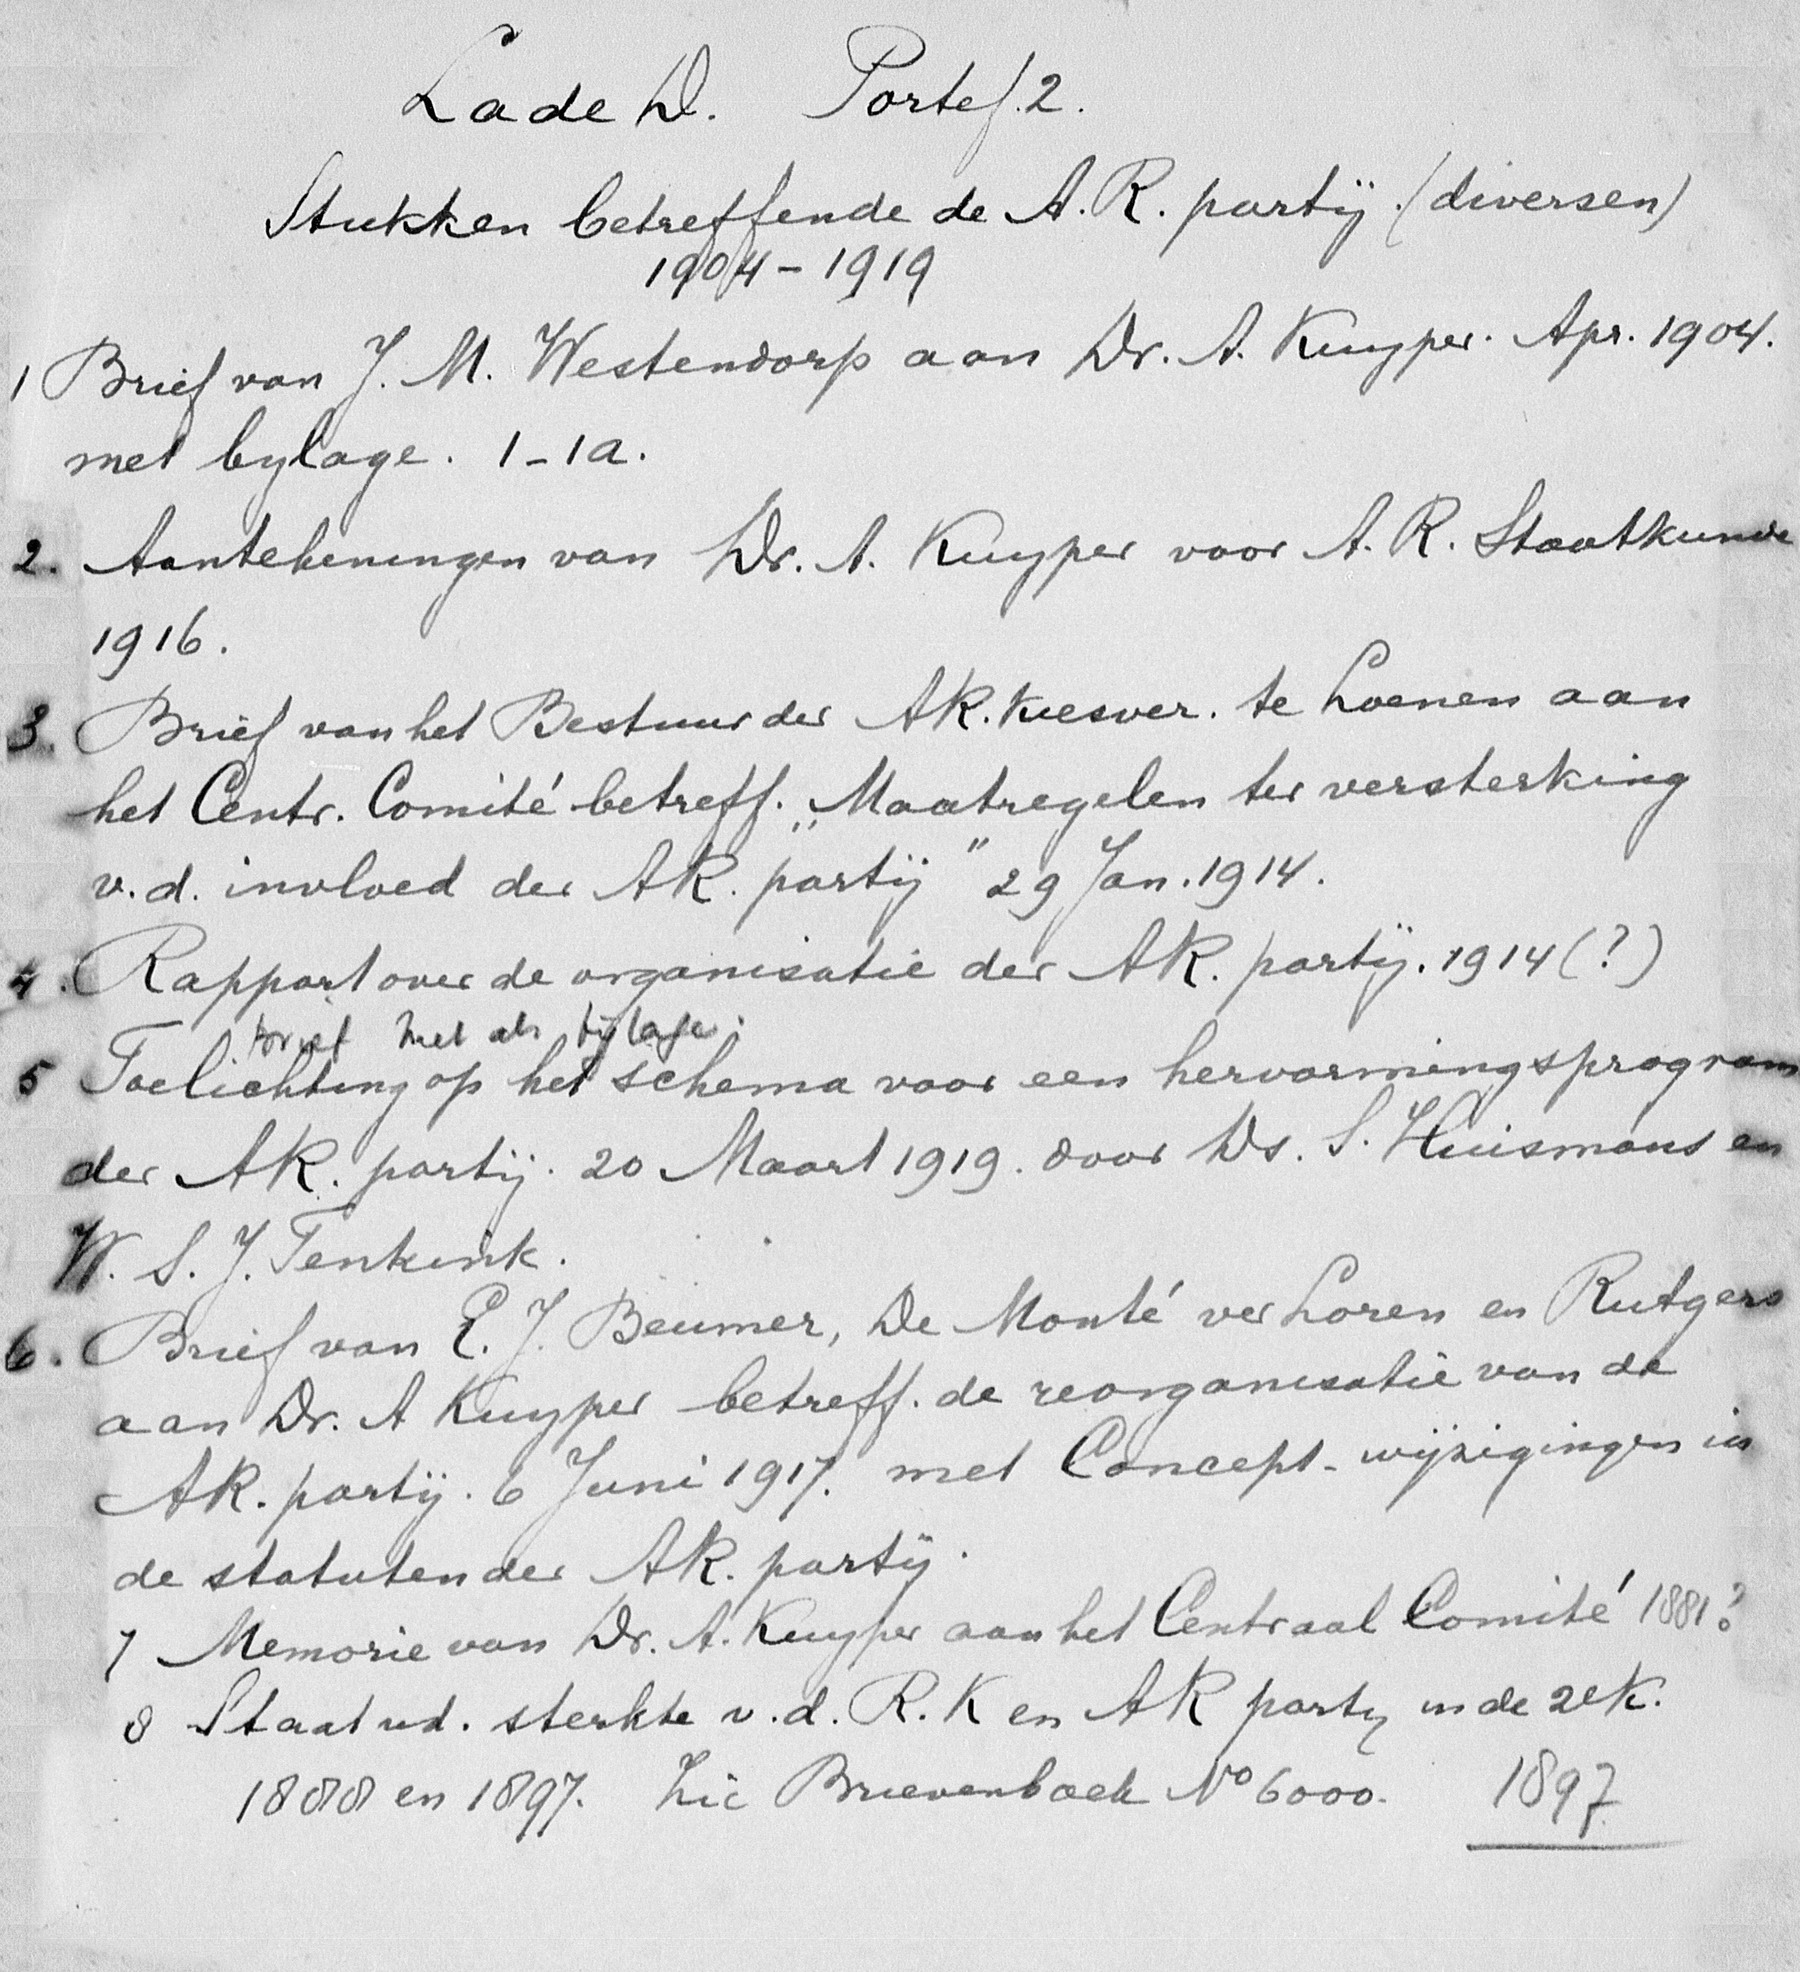 Lade D. Portef. 2.
Stukken betreffende de A. R. partij. (diversen)
1904 - 1919
1 Brief van J. M. Westendorp aan Dr. A. Kuyper. Apr. 1904.
met bylage. 1 - 1a.
2. Aantekeningen van Dr. A. Kuyper voor A. R. Staatkunde
1916.
3. Brief van het Bestuur der AR. Kiesver. te Loenen aan
het Centr. Comité betreff. „Maatregelen ter versterking
v. d. invloed der AR. partij" 29 Jan. 1914.
4. Rapport over de organisatie der AR. partij. 1914 (?)
brief met als bijlage:
5 Toelichting op het schema voor een hervormingsprogram
der AR. partij. 20 Maart 1919. door Ds. S. Huismans en
W. S. J. Tenkink.
6. Brief van E. J. Beumer, De Monté ver Loren en Rutgers
aan Dr. A Kuyper betreff. de reorganisatie van de
AR. partij. 6 Juni 1917. met Concept-wijzigingen in
de statuten der AR. partij.
7 Memorie van Dr. A. Kuyper aan het Centraal Comité 1881?
8 Staat v.d. sterkte v. d. R. K en AR party in de 2e K.
1888 en 1897. Zie Brievenboek No 6000. 1897